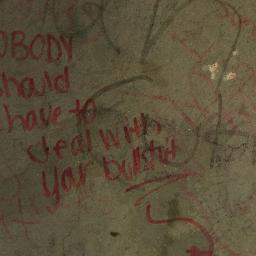 OBODY
should
have to
deal with
your bullshit